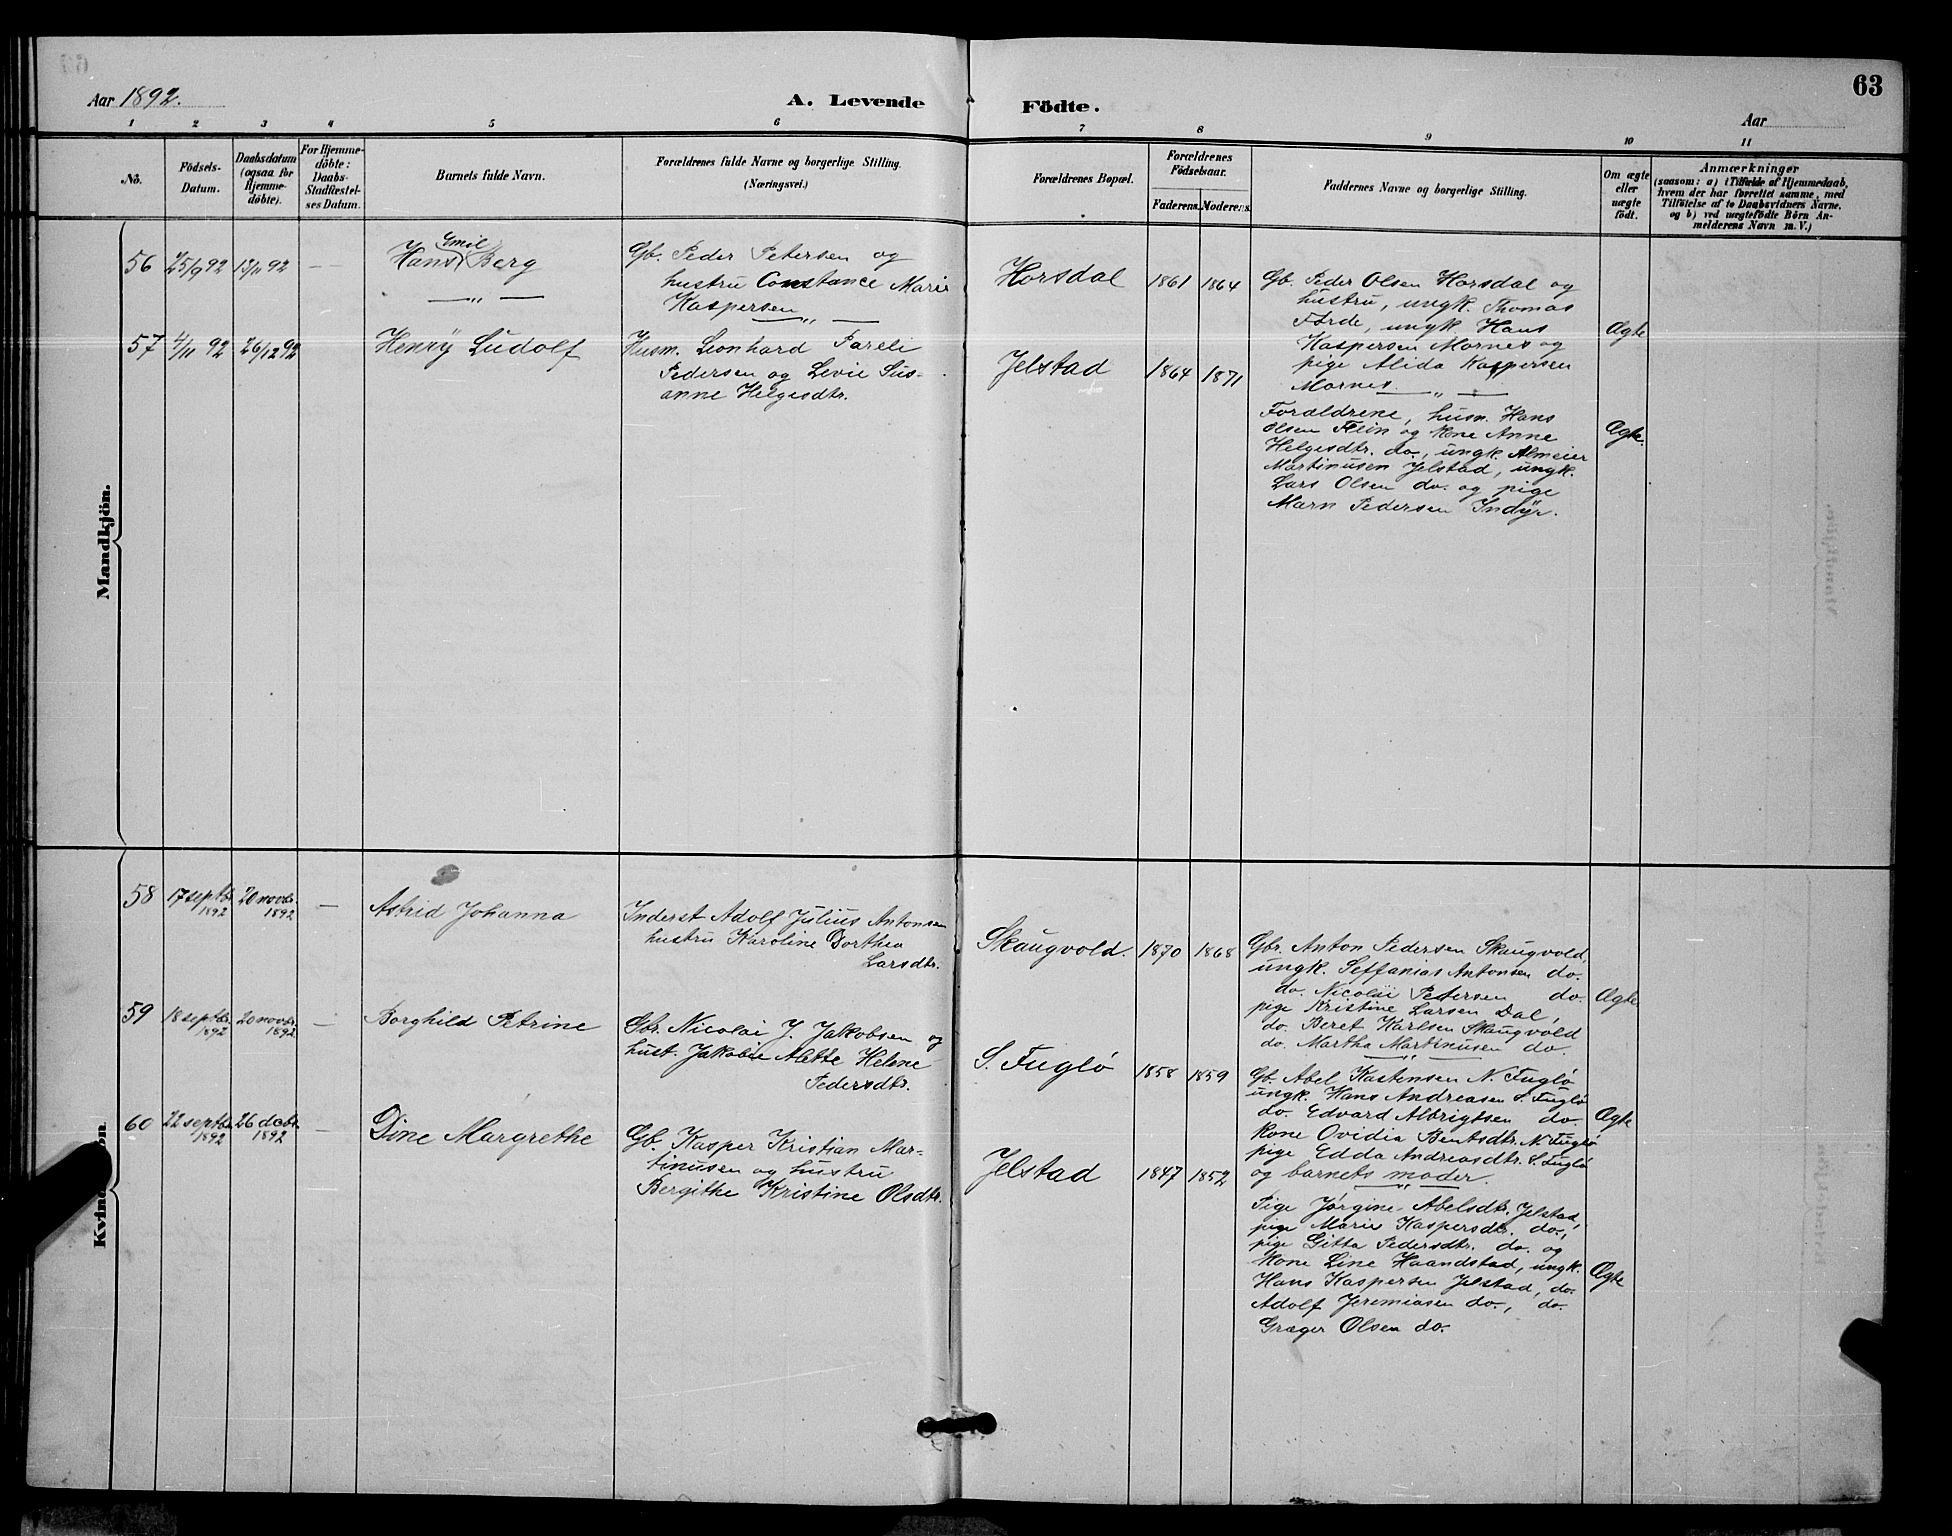 Aar 1892.
A. Levende Födte.
63
Aar
1 2 3 4 5 6 7 8 9 10 11
No.
Födsels-
Datum.
Daabsdatum
(ogsaa for
Hjemme-
döbte).
For Hjemme-
döbte:
Daabs-
Stadfæstel-
ses Datum.
Barnets fulde Navn.
Forældrenes fulde Navne og borgerlige Stilling.
(Næringsvei.)
Forældrenes Bopæl.
Forældrenes
Födselsaar.
Faderens. Moderens.
Faddernes Navne og borgerlige Stilling.
Om ægte
eller
uægte
födt.
Anmærkninger
(saasom: a) i Tilfælde af Hjemmedaab,
hvem der har forrettet samme, med
Tilföielse af to Daabsvidners Navne,
og b) ved uægtefödte Börn An-
melderens Navn m. V.)
Mandkjön.
56 25/9 92 13/11 92 — —
Emil
Hans Berg
— " —
Gb. Peder Petersen og
hustru Constance Marie
Kaspersen
— " —
Horsdal 1861 1864
Gb. Peder Olsen Horsdal og
hustru, ungk. Thomas
Förde, ungk. Hans
Kaspersen Mornes og
pige Alida Kaspersen
Mornes. — " —
Ægte
57 4/11 92 26/12 92
Henrÿ Ludolf
Husm. Leonhard Pareli
Pedersen og Levie Sus-
anne Helgesdtr.
Jelstad 1864 1871
Forældrene, husm. Hans
Olsen Flein og kone Anne
Helgesdtr. do., ungk. Almeier
Martinusen Jelstad, ungk.
Lars Olsen do. og pige
Marn Pedersen Indÿr.
Ægte.
Kvin
58 17 septbr. 1892 20 novbr. 1892 —
Astrid Johanna
Inderst Adolf Julius Antonsen
hustru Karoline Dorthea
Larsdtr.
Skaugvold. 1870 1868
Gbr. Anton Pedersen Skaugvold,
ungk. Seffanias Antonsen do.
do. Nicolai Petersen do.
pige Kristine Larsen Dal,
do. Beret Karlsen Skaugvold
do. Martha Martinusen do.
— " —
Ægte
59 18 septbr. 1892 20 novbr. 1892 —
Borghild Petrine
Gbr. Nicolai J. Jakobsen og
hust. Jakobie Alette Helene
Pedersdtr.
S. Fuglö 1858 1859
Gb. Abel Kastensen N. Fuglö
ungk. Hans Andreasen S. Fuglö
do. Edvard Albrigtsen do.
kone Ovidia Bentsdtr. N. Fuglö
pige Edda Andreasdtr. S. Fuglö
og barnets moder.
— " —
Ægte
60 22 septbr. 1892 26 dcbr. 1892 —
Dine Margrethe
Gb. Kasper Kristian Mar-
tinusen og hustru
Bergithe Kristine Olsdtr.
Jelstad 1847 1852
Pige Jörgine Abelsdtr. Jelstad,
pige Marie Kaspersdtr. do.,
pige Gitta Pedersdtr. do. og
kone Line Haandstad, ungk.
Hans Kaspersen Jelstad, do.
Adolf Jeremiasen do., do.
Græger Olsen do.
Ægte